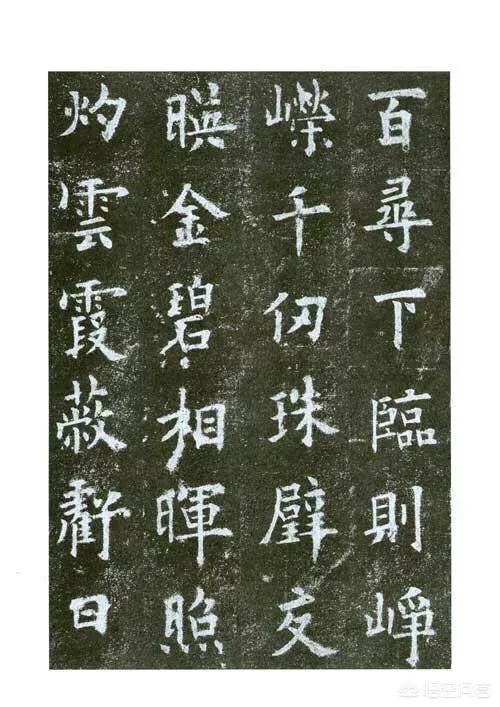 百尋下臨則崢
嶸千仞珠璧交
暎金碧相暉照
灼雲霞蔽虧日
悟空问答